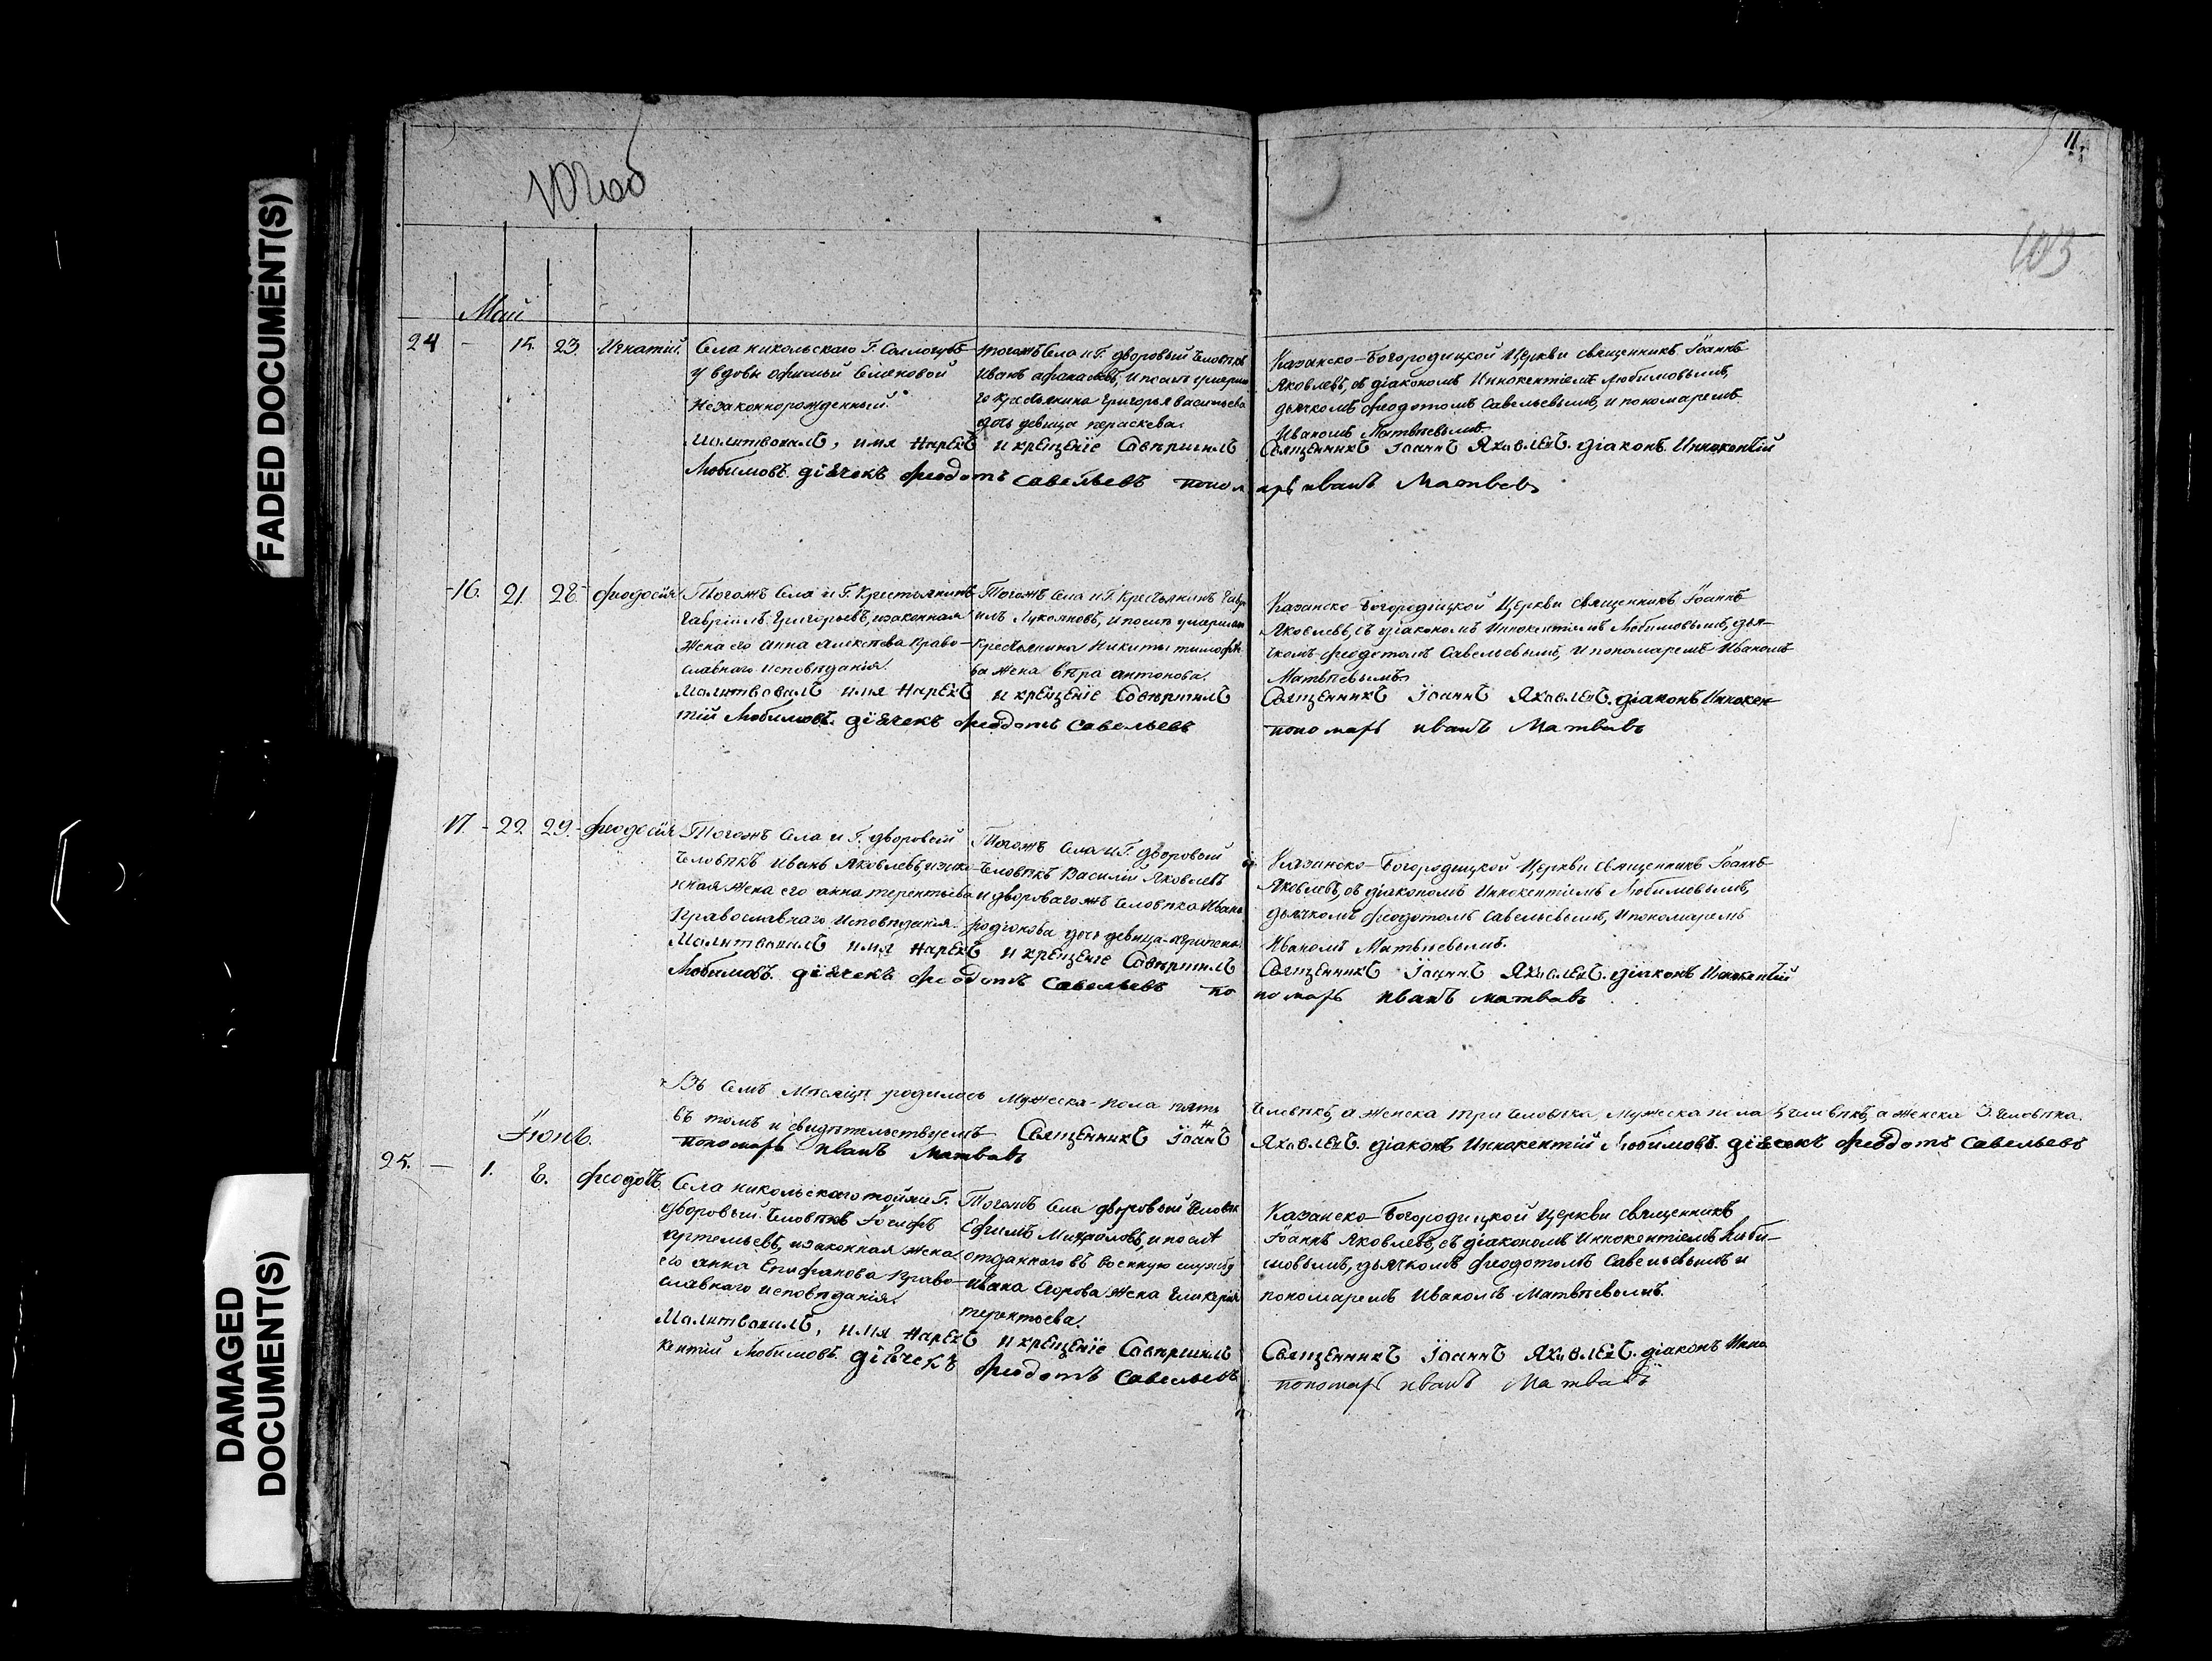 FADED DOCUMENT(S)
DAMAGED
DOCUMENT(S)
11
103
Май
24 - 15. 23. Игнатій.
Села никольскаго Г.
у вдовы Офимьи Семеновой
Незаконнорожденный.
тогожъ Села и Г. дворовый Человѣкъ
Иванъ афанасьевъ, и послѣ умерша
го Крестьянина Григорья васильева
дочь девица пераскева.
Казанско-Богородицкой Церкви священникъ Іоаннъ
Яковлевъ, съ діакономъ Иннокентіемъ Любимовымъ,
дьячкомъ Феодотомъ Савельевымъ, и пономаремъ
Иваномъ Матвѣевымъ.
Молитвовалъ, имя Нарекъ и крещеніе Совершилъ Священникъ Іоаннъ Яковлевъ. діаконъ Иннокентій
Любимовъ. діячекъ Феодотъ Савельевъ пономарь иванъ Матвевъ
16. 21. 28. Феодосія
Тогожъ Села и Г. Крестьянинъ
Гавріилъ Григорьевъ, и законная
Жена его Анна алексѣева Право-
славнаго исповѣданія.
Тогожъ Села и Г. Крестьянинъ Гаври
илъ Лукояновъ, и послѣ умершаго
Крестьянина Никиты тимофѣе
ва жена вѣра антонова.
Казанско-Богородицкой Церкви священникъ Іоаннъ
Яковлевъ, съ діакономъ Иннокентіемъ Любимовымъ, дья-
чкомъ Феодотомъ Савельевымъ, и пономаремъ Иваномъ
Матвѣевымъ.
Молитвовалъ имя Нарекъ и крещеніе Совершилъ Священникъ Іоаннъ Яковлевъ. діаконъ Иннокен
тій Любимовъ. діячекъ Феодотъ Савельевъ пономарь иванъ Матвевъ
17. - 22. 29. Феодосія
Тогожъ Села и Г. дворовый
Человѣкъ Иванъ Яковлевъ, и зако
нная Жена его анна терентьева
Православнаго Исповѣданія.
Тогожъ Села и Г. дворовый
Человѣкъ Василій Яковлевъ
и двороваго жъ Человѣка Ивана
родіонова дочь девица агрипена.
Казанско-Богородицкой Церкви Священникъ Іоаннъ
Яковлевъ, съ діакономъ Иннокентіемъ Любимовымъ,
дьячкомъ Феодотомъ Савельевымъ, и пономаремъ
Иваномъ Матвѣевымъ.
Молитвовалъ имя Нарекъ и крещеніе Совершилъ Священникъ Іоаннъ Яковлевъ. діаконъ Иннокентій
Любимовъ. діячекъ Феодотъ Савельевъ пономарь иванъ матвевъ
Въ Семъ Мѣсяцѣ родилось Мужеска-пола пять Человѣкъ, а женска три Человѣка, Мужеска пола 5 человѣкъ, а женска 3. Человѣка.
въ томъ и свидѣтельствуемъ Священникъ Іоаннъ Яковлевъ. діаконъ Иннокентій Любимовъ. діячекъ Феодотъ Савельевъ
пономарь иванъ Матвевъ
Іюнь.
25. - 1. 6. Феодотъ
Села никольскаго тойже Г.
дворовый Человѣкъ Іосифъ
артемьевъ, и законная жена
его анна Епифанова Право-
славнаго исповѣданія.
Тогожъ Села дворовый Человѣк
Ефимъ Михайловъ, и послѣ
отданнаго въ военную службу
ивана Егорова жена Гликерія
терентьева.
Казанско-Богородицкой Церкви священникъ
Іоаннъ Яковлевъ, съ діакономъ Иннокентіемъ Люби-
мовымъ, дьячкомъ Феодотомъ Савельевымъ и
пономаремъ Иваномъ Матвѣевымъ.
Молитвовалъ, имя Нарекъ и крещеніе Совершилъ Священникъ Іоаннъ Яковлевъ. діаконъ Инно
кентій Любимовъ. діячекъ Феодотъ Савельевъ пономарь иванъ Матвевъ